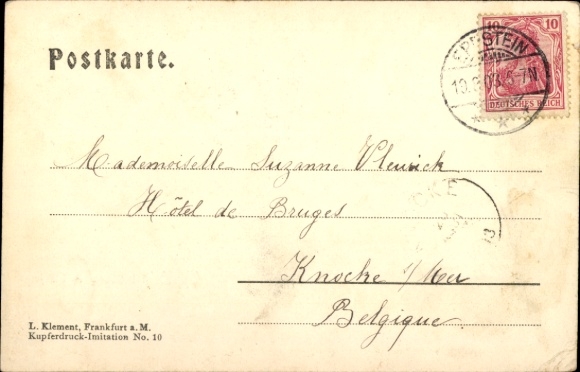 Postkarte.
10 10
DEUTSCHES REICH
EPPSTEIN
5-7N
Mademoiselle Suzanne Vleurick
Hôtel de Bruges
Knocke s/Mer
Belgique.
L. Klement, Frankfurt a. M.
Kupferdruck-Imitation No. 10